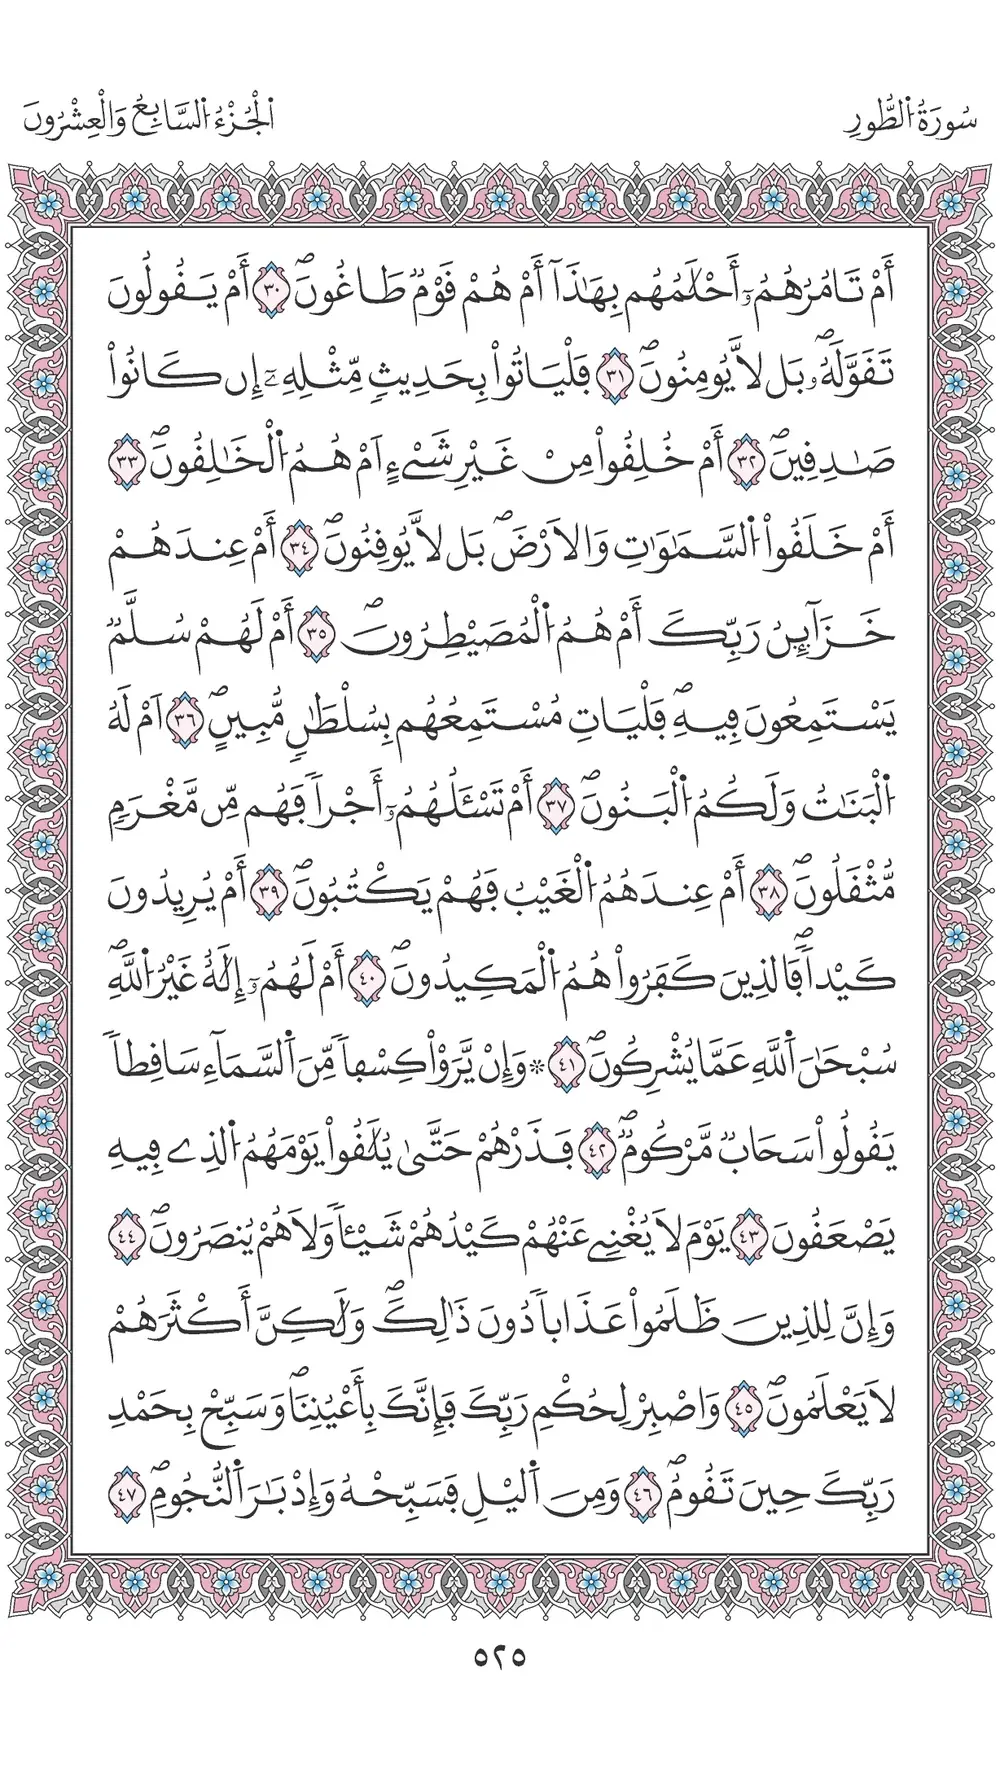 سُورَةُ الطُّورِ
الْجُزْءُ السَّابِعُ وَالْعِشْرُونَ
أَمْ تَامُرُهُمُۥٓ أَحْلَٰمُهُم بِهَٰذَآ أَمْ هُمْ قَوْمٞ طَاغُونَۖ ٣٠ أَمْ يَقُولُونَ
تَقَوَّلَهُۥۖ بَل لَّا يُومِنُونَۖ ٣١ فَلْيَاتُواْ بِحَدِيثٖ مِّثْلِهِۦٓ إِن كَانُواْ
صَٰدِقِينَۖ ٣٢ أَمْ خُلِقُواْ مِنْ غَيْرِ شَےْءٍ اَمْ هُمُ اُ۬لْخَٰلِقُونَۖ ٣٣
أَمْ خَلَقُواْ اُ۬لسَّمَٰوَٰتِ وَالَارْضَۖ بَل لَّا يُوقِنُونَۖ ٣٤ أَمْ عِندَهُمْ
خَزَآئِنُ رَبِّكَ أَمْ هُمُ اُ۬لْمُصَيْطِرُونَۖ ٣٥ أَمْ لَهُمْ سُلَّمٞ
يَسْتَمِعُونَ فِيهِۖ فَلْيَاتِ مُسْتَمِعُهُم بِسُلْطَٰنٖ مُّبِينٍۖ ٣٦ اَمْ لَهُ
اُ۬لْبَنَٰتُ وَلَكُمُ اُ۬لْبَنُونَۖ ٣٧ أَمْ تَسْـَٔلُهُمُۥٓ أَجْراٗ فَهُم مِّن مَّغْرَمٖ
مُّثْقَلُونَۖ ٣٨ أَمْ عِندَهُمُ اُ۬لْغَيْبُ فَهُمْ يَكْتُبُونَۖ ٣٩ أَمْ يُرِيدُونَ
كَيْداٗۖ فَالذِينَ كَفَرُواْ هُمُ اُ۬لْمَكِيدُونَۖ ٤٠ أَمْ لَهُمُۥٓ إِلَٰهٌ غَيْرُ اُ۬للَّهِۖ
سُبْحَٰنَ اَ۬للَّهِ عَمَّا يُشْرِكُونَۖ ٤١ ۞ وَإِنْ يَّرَوْاْ كِسْفاٗ مِّنَ اَ۬لسَّمَآءِ سَاقِطاٗ
يَقُولُواْ سَحَابٞ مَّرْكُومٞۖ ٤٢ فَذَرْهُمْ حَتَّىٰ يُلَٰقُواْ يَوْمَهُمُ اُ۬لذِے فِيهِ
يَصْعَقُونَ ٤٣ يَوْمَ لَا يُغْنِے عَنْهُمْ كَيْدُهُمْ شَيْـٔاٗ وَلَا هُمْ يُنصَرُونَۖ ٤٤
وَإِنَّ لِلذِينَ ظَلَمُواْ عَذَاباٗ دُونَ ذَٰلِكَۖ وَلَٰكِنَّ أَكْثَرَهُمْ
لَا يَعْلَمُونَۖ ٤٥ وَاصْبِرْ لِحُكْمِ رَبِّكَ فَإِنَّكَ بِأَعْيُنِنَاۖ وَسَبِّحْ بِحَمْدِ
رَبِّكَ حِينَ تَقُومُۖ ٤٦ وَمِنَ اَ۬ليْلِ فَسَبِّحْهُ وَإِدْبَٰرَ اَ۬لنُّجُومِۖ ٤٧
٥٢٥